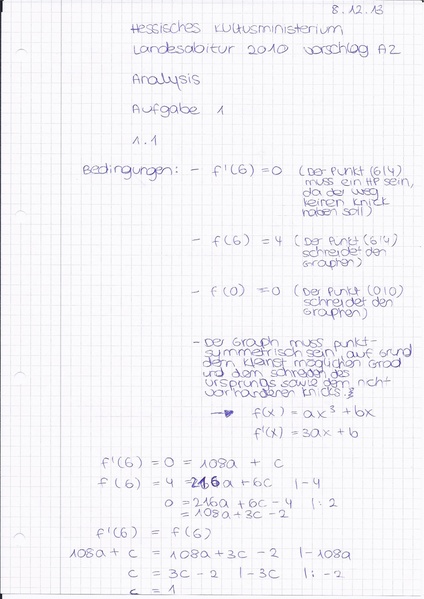 8.12.13
Hessisches Kultusministerium
Landesabitur 2010 Vorschlag A2
Analysis
Aufgabe 1
1.1
Bedingungen: - f'(6) = 0 (Der Punkt (6|4)
muss ein HP sein,
da der Weg
keinen Knick
haben soll)
- f(6) = 4 (Der Punkt (6|4)
schneidet den
Graphen)
- f(0) = 0 (Der Punkt (0|0)
schneidet den
Graphen)
- Der Graph muss punkt-
symmetrisch sein, auf Grund
dem kleinst möglichen Grad
und dem schneiden des
Ursprungs sowie dem nicht
vorhandenen Knicks.
→ f(x) = ax³ + bx
f'(x) = 3ax + b
f'(6) = 0 = 108a + c
f(6) = 4 = 216a + 6c |-4
0 = 216a + 6c - 4 |: 2
= 108a + 3c - 2
f'(6) = f(6)
108a + c = 108a + 3c - 2 |-108a
c = 3c - 2 |-3c |: -2
c = 1